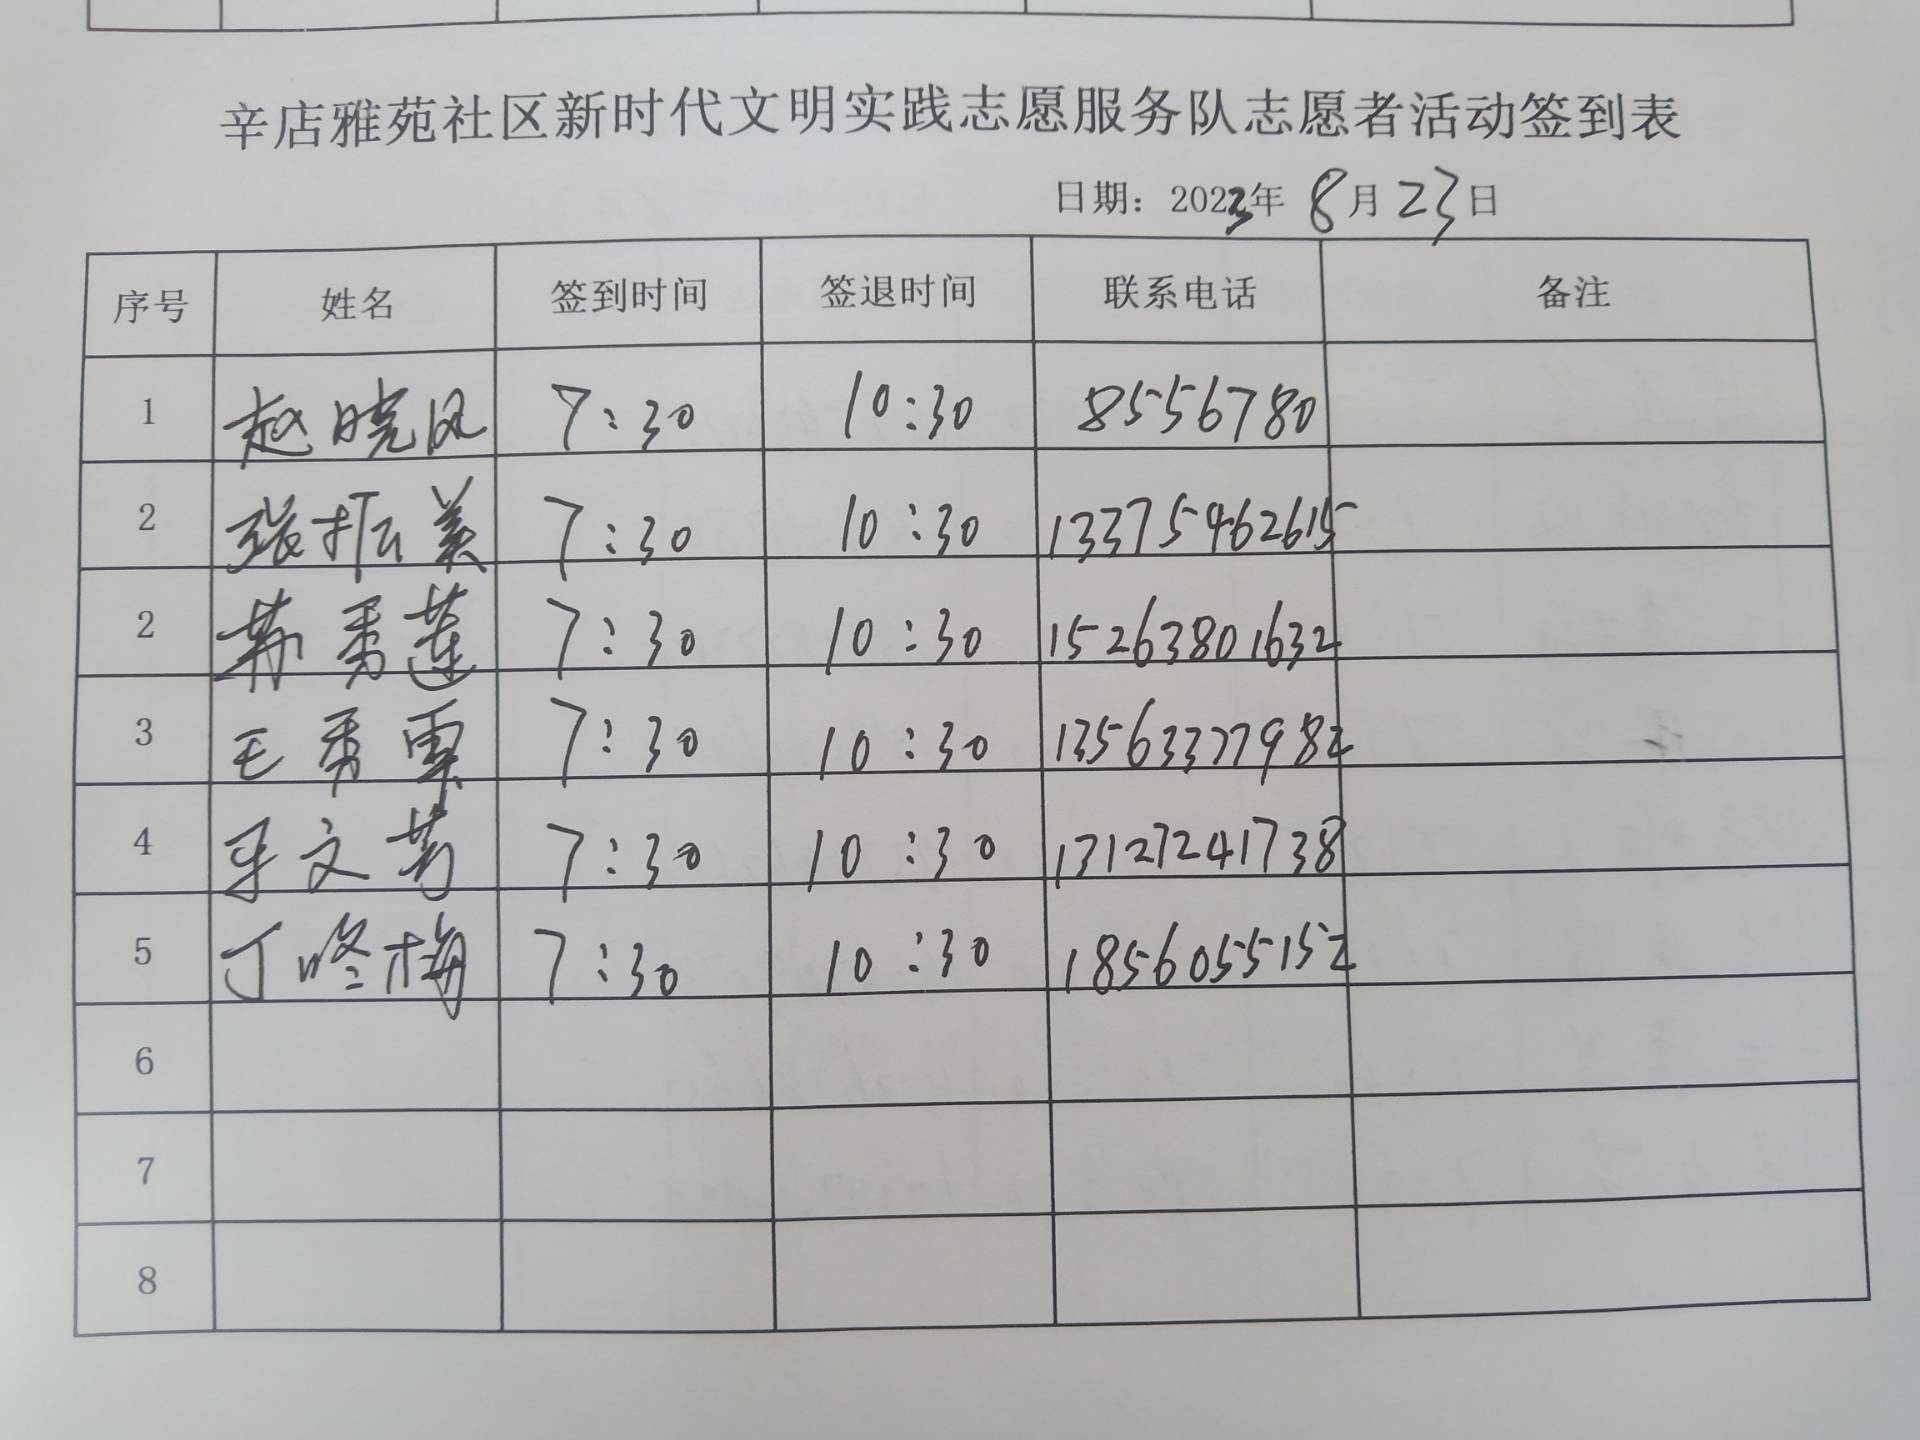 辛店雅苑社区新时代文明实践志愿服务队志愿者活动签到表
日期：2023年 8月23日
序号 姓名 签到时间 签退时间 联系电话 备注
1 赵晓风 7:30 10:30 8556780
2 张振美 7:30 10:30 13375462615
2 秀莲 7:30 10:30 15263801632
3 王秀 7:30 10:30 13563377982
4 文芳 7:30 10:30 13127241738
5 丁咚梅 7:30 10:30 18560555152
6
7
8